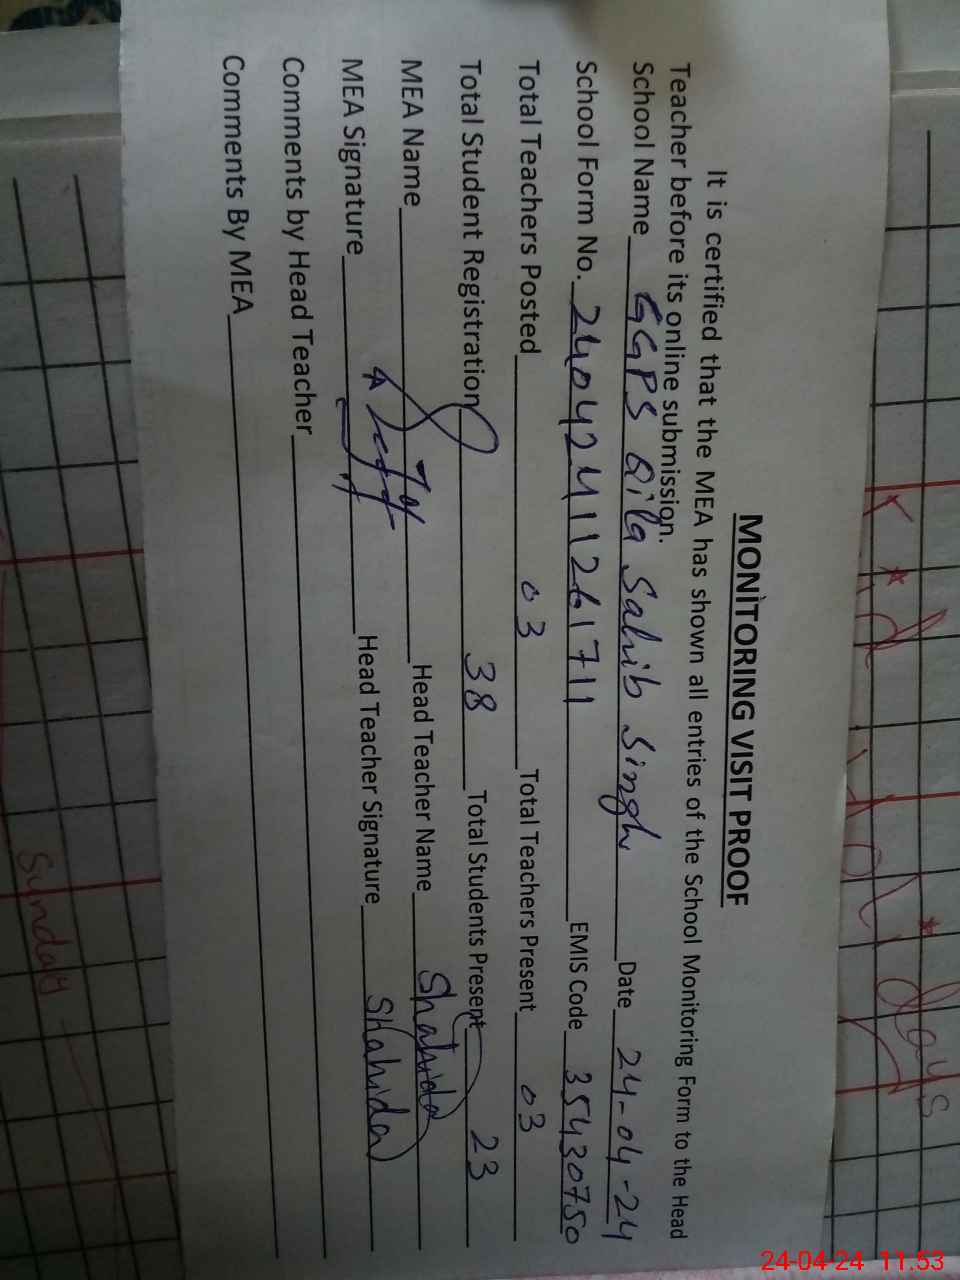 MONITORING VISIT PROOF
It is certified that the MEA has shown all entries of the School Monitoring Form to the Head
Teacher before its online submission.
School Name GGPS Qila Sahib Singh Date 24-04-24
School Form No. 24042411261711 EMIS Code 35430750
Total Teachers Posted 03 Total Teachers Present 03
Total Student Registration 38 Total Students Present 23
MEA Name Head Teacher Name Shahida
MEA Signature Head Teacher Signature Shahida
Comments by Head Teacher
Comments By MEA
days
Sunday
24-04-24 11.53